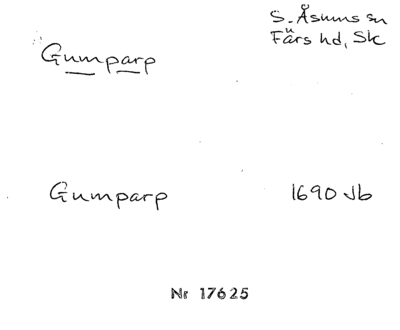 S. Åsums sn
Färs hd, Sk
Gumparp
Gumparp 1690 Jb
Nr 17625